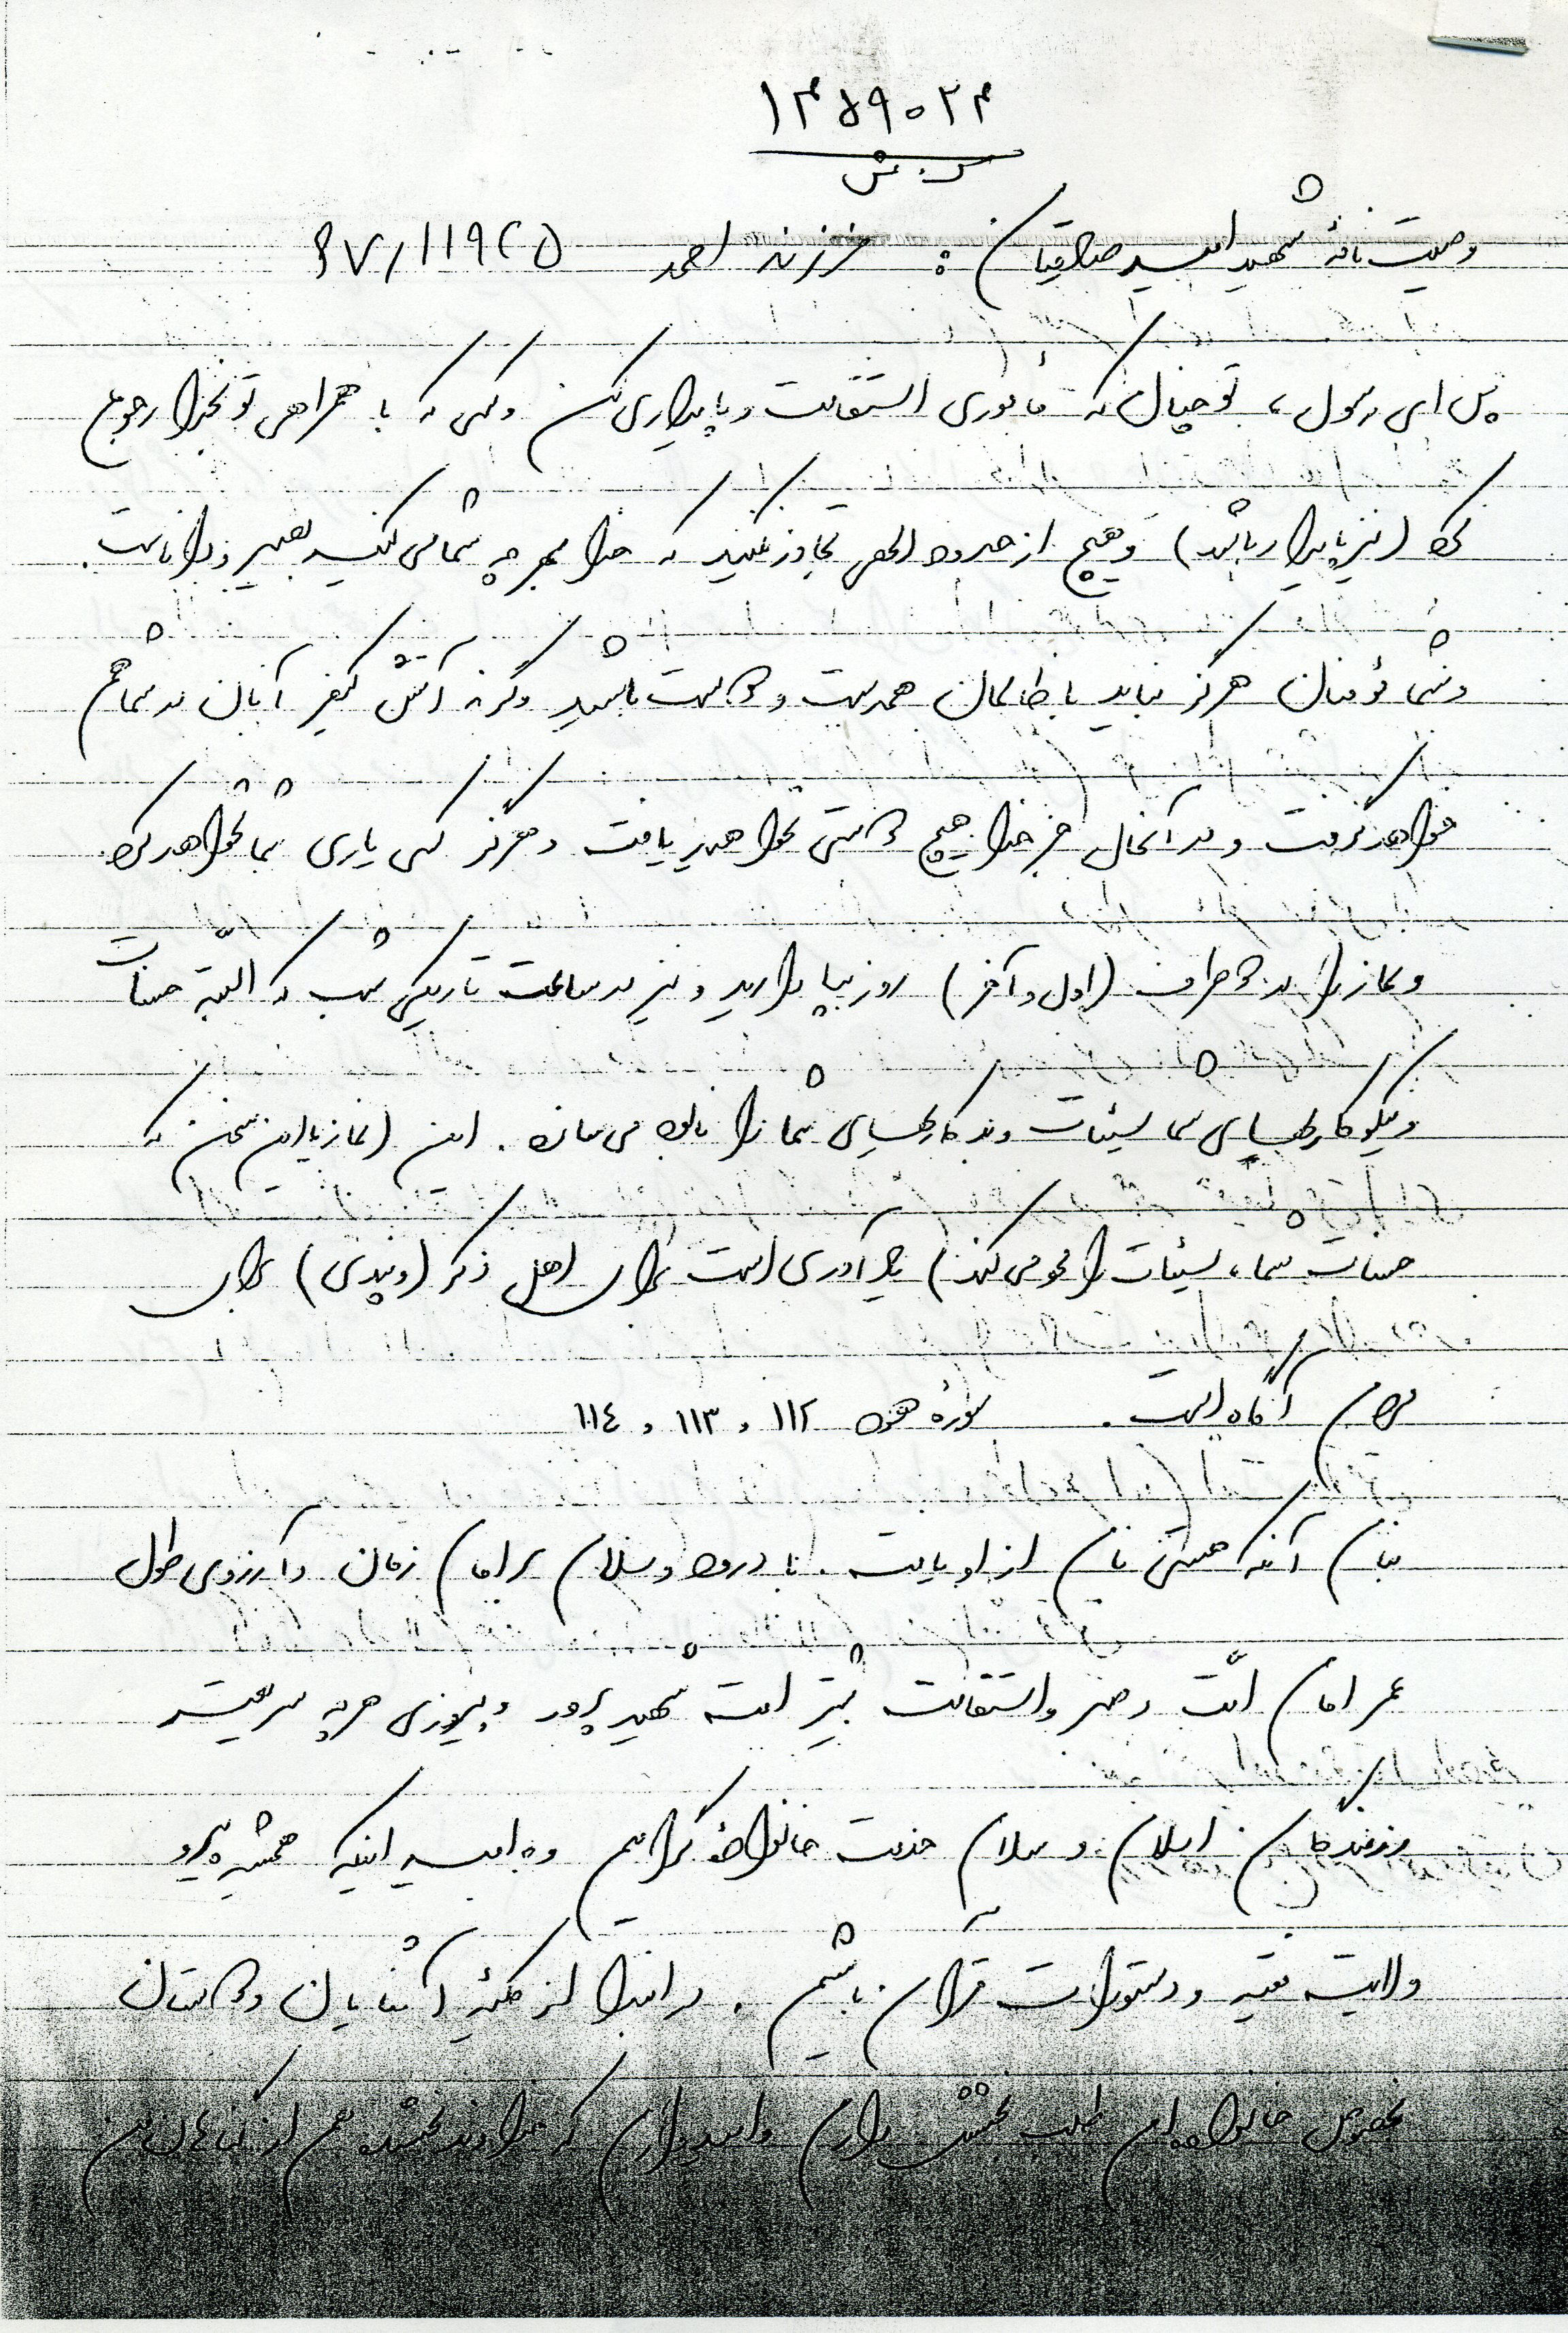 ۱۴۵۹۰۲۴
س. ش
وصیت نامۀ شهید امید صادقیان : فرزند احمد ۶۷/۱۱۹۲۵
پس ای رسول، تو چنان که مأموری استقامت و پایداری کن و کسی که با همراهی تو بخدا رجوع
کرد (نیز پایدار باشد) و هیچ از حدود الهی تجاوز نکنید که خدا بهر چه شما می‌کنید بصیر و داناست.
و شما مؤمنان هرگز نباید با ظالمان همدست و دوست باشید وگرنه آتش کیفر آنان در شما هم
خواهد گرفت و در آنحال جز خدا هیچ دوستی نخواهید یافت و هرگز کسی یاری شما نخواهد کرد.
و نماز را در دو طرف (اول و آخر) روز بپا دارید و نیز در ساعت تاریکی شب که البتّه حسنات
و نیکوکاریهای شما سیئات و بدکاریهای شما را نابود می‌سازد. این (نماز یا این سخن که
حسنات شما، سیئات را محو می‌کند) یادآوری است برای اهل ذکر (و پندی) برای
مردم آگاه است. سورۀ هود ۱۱۲ و ۱۱۳ و ۱۱٤
بنام آنکه هستی نام از او یافت. با درود و سلام بر امام زمان و آرزوی طول
عمر امام امّت و صبر و استقامت بیشتر امت شهید پرور و پیروزی هر چه سریعتر
رزمندگان اسلام و سلام خدمت خانوادۀ گرامیم و به امید اینکه همیشه پیرو
ولایت فقیه و دستورات قرآن باشیم. در ابتدا از کلیۀ آشنایان و دوستان
بخصوص خانواده ام طلب بخشش دارم و امیدوارم که خداوند بخشنده هم از گناهان من